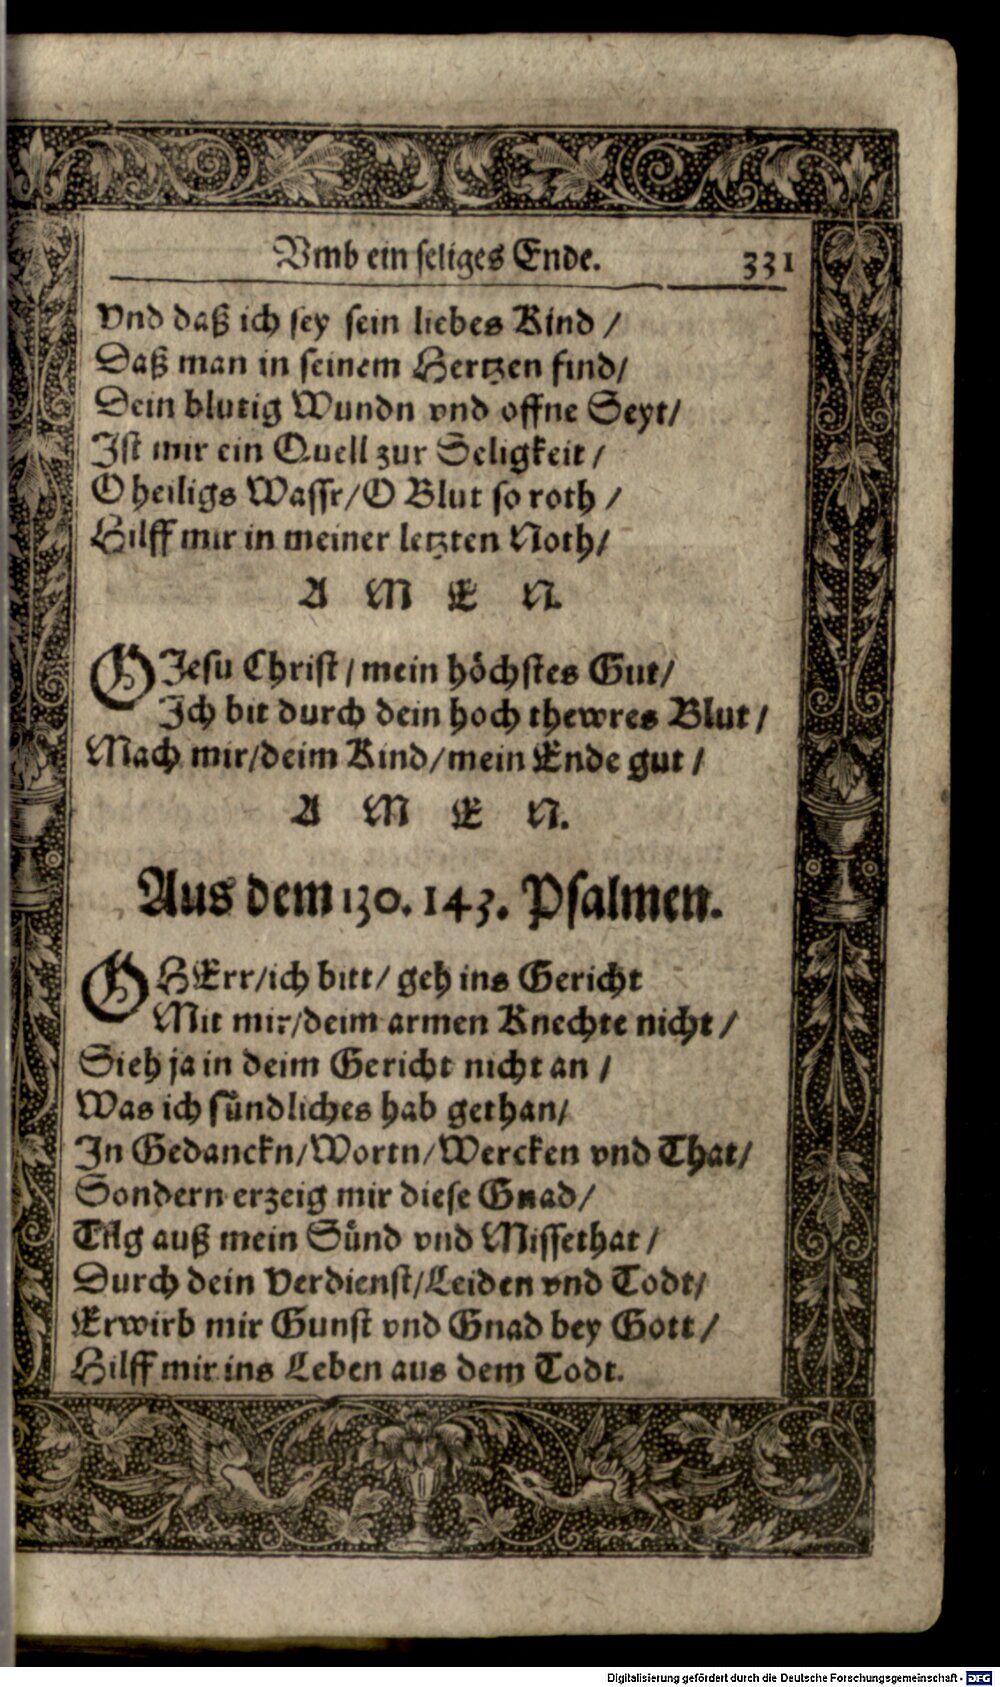 Vmb ein seliges Ende. 331
vnd daß ich sey sein liebes Kind /
Daß man in seinem Hertzen find/
Dein blutig Wundn vnd offne Seyt/
Ist mir ein Quell zur Seligkeit /
O heiligs Wassr/O Blut so roth /
Hilff mir in meiner letzten Noth/
A M E N.
O Jesu Christ / mein höchstes Gut/
Ich bit durch dein hoch thewres Blut /
Mach mir/deim Kind/mein Ende gut /
A M E N.
Aus dem 130. 143. Psalmen.
O HErr/ich bitt/ geh ins Gericht
Mit mir/deim armen Knechte nicht /
Sieh ja in deim Gericht nicht an /
Was ich sündliches hab gethan/
In Gedanckn/Wortn/Wercken vnd That/
Sondern erzeig mir diese Gnad/
Tilg auß mein Sünd vnd Missethat /
Durch dein Verdienst/Leiden vnd Todt/
Erwirb mir Gunst vnd Gnad bey Gott /
Hilff mir ins Leben aus dem Todt.
Digitalisierung gefördert durch die Deutsche Forschungsgemeinschaft - DFG